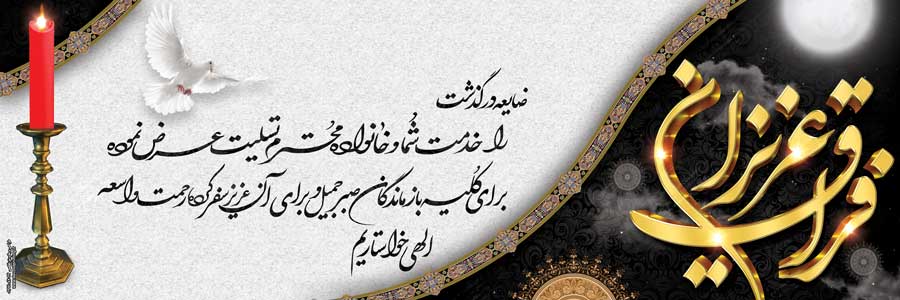 فراق عزیزان
ضایعه درگذشت
را خدمت شما و خانواده محترم تسلیت عرض نموده
برای کلیه بازماندگان صبر جمیل و برای آن عزیز سفر کرده رحمت واسعه
الهی خواستاریم